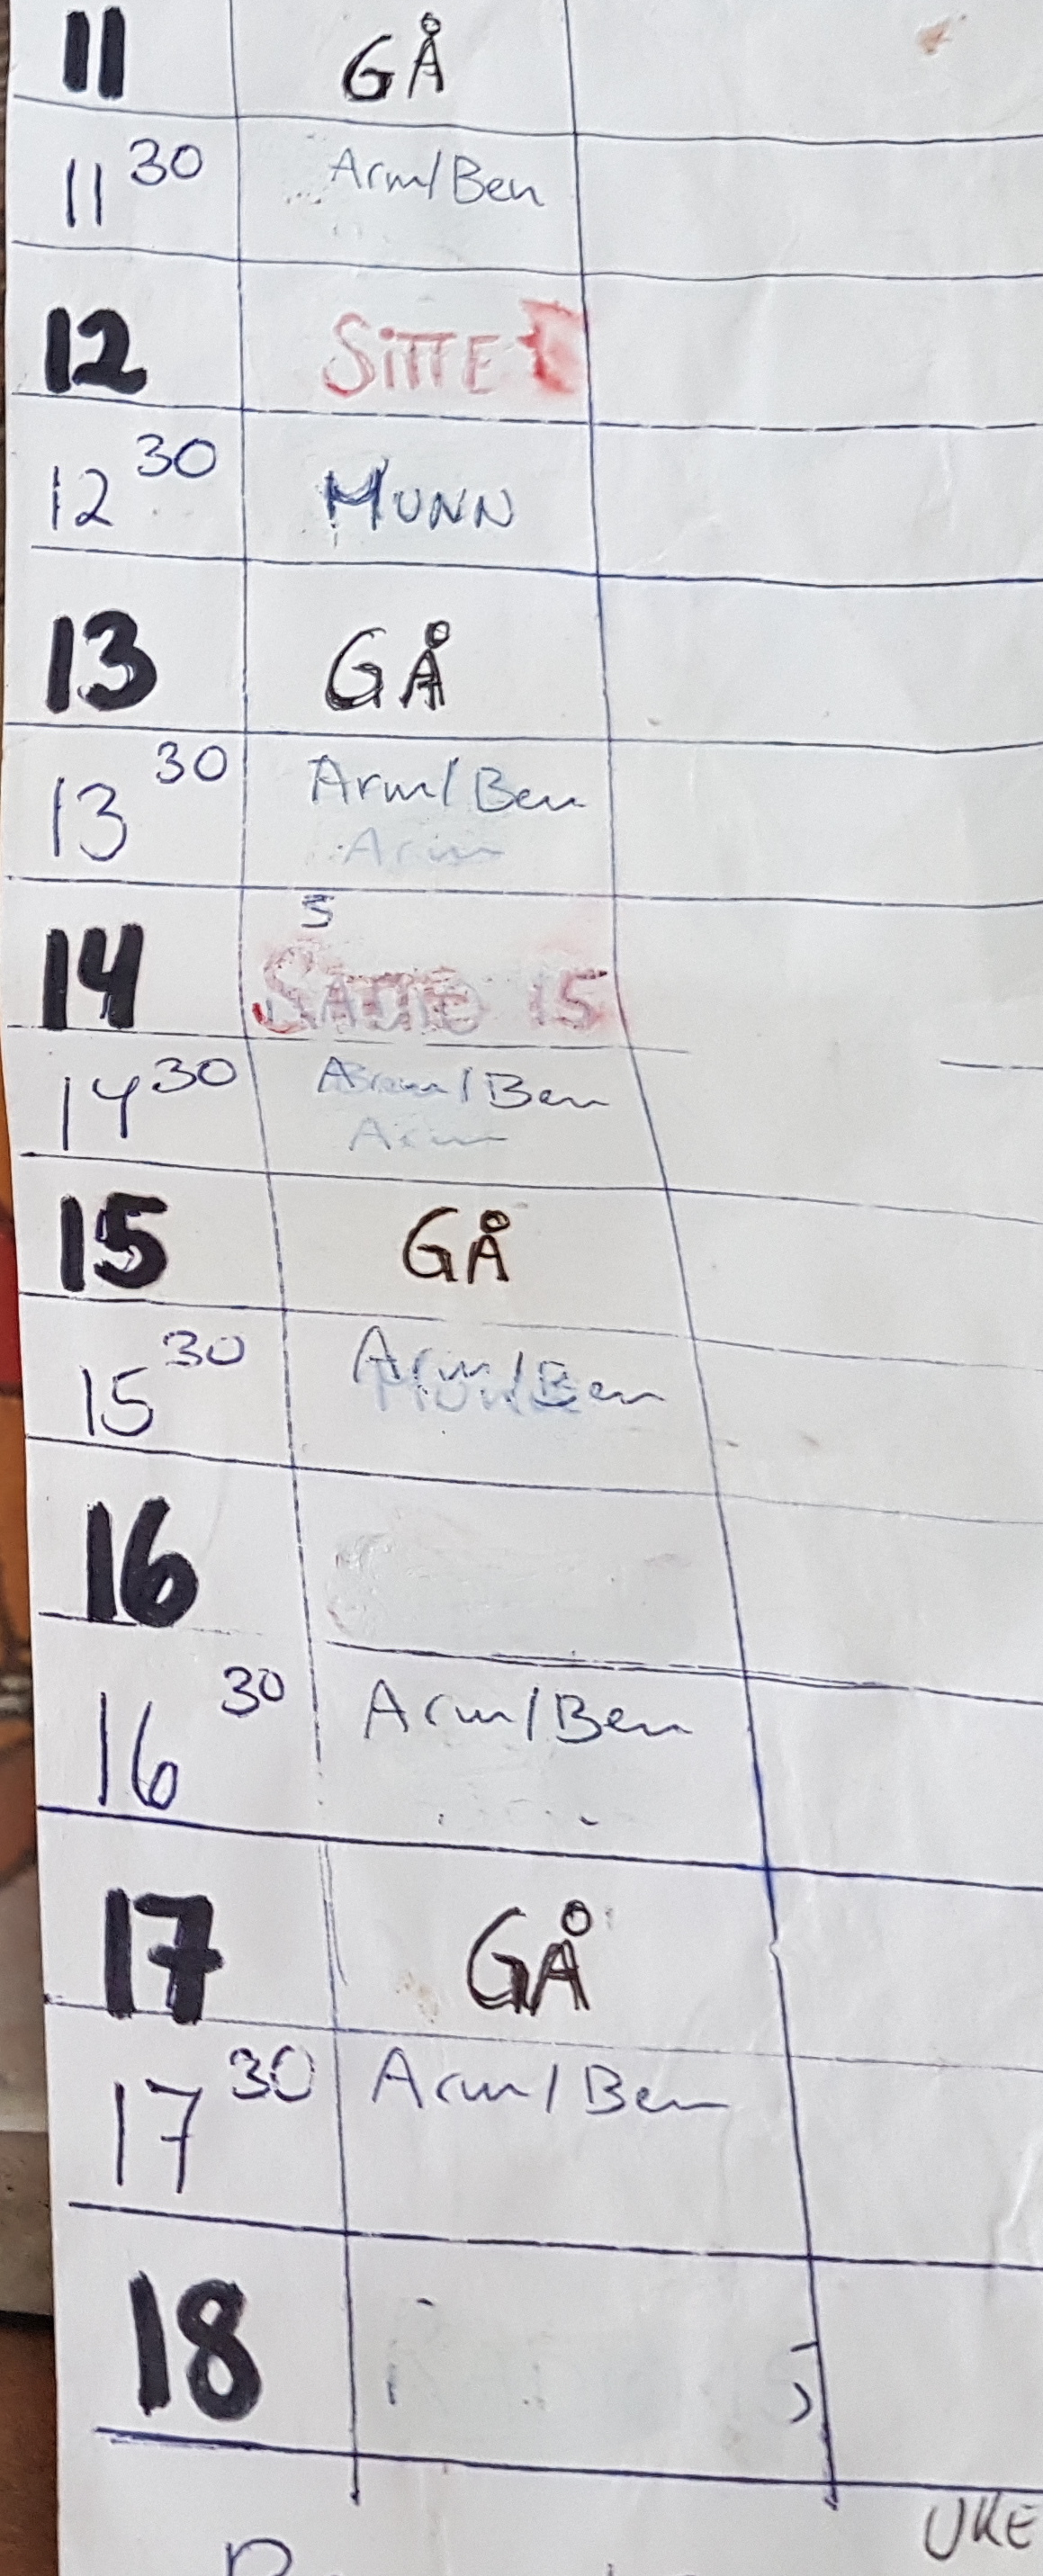 11 GÅ
11 30 Arm/Ben
12 SiTTE
12 30 MUNN
13 GÅ
13 30 Arm/Ben
Arm
5
14 15
14 30 Arm/Ben
Arm
15 GÅ
15 30 Arm/Ben
16
16 30 Arm/Ben
17 GÅ
17 30 Arm/Ben
18
UKE